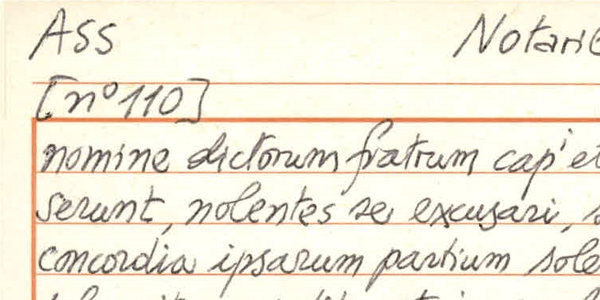 Ass Notari
[n° 110]
nomine dictorum fratrum cap' et
serunt, nolentes se excusari,
concordia ipsarum partium sole